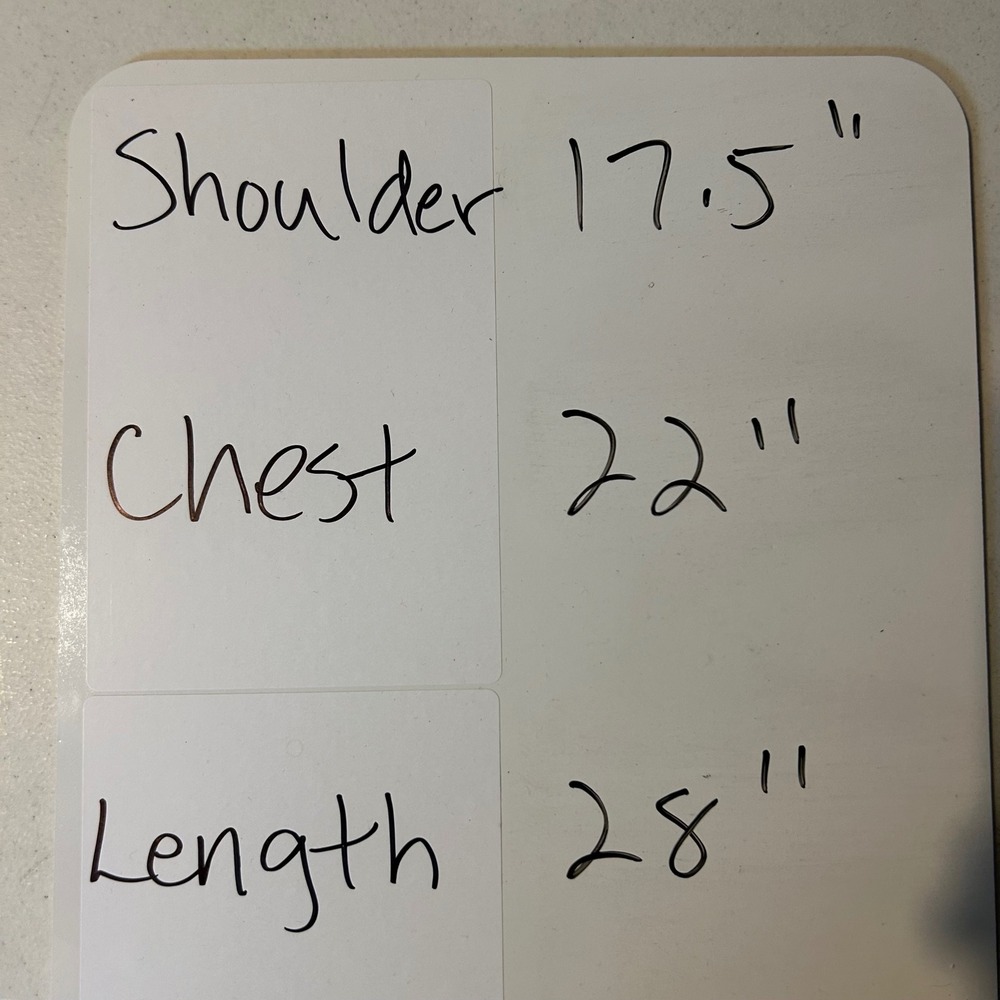 Shoulder 17.5"
Chest 22"
Length 28"